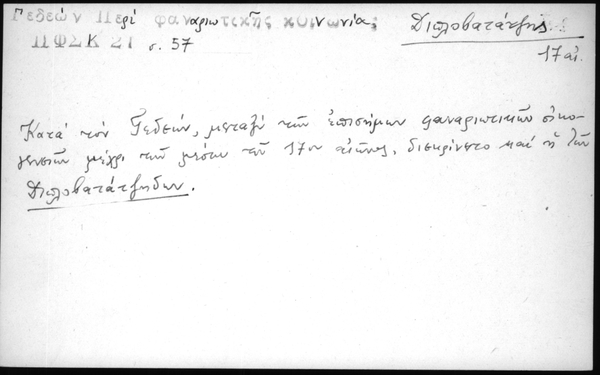 Γεδεών Περί φαναριωτικῆς κοινωνίας
ΠΦΣΚ 21 σ. 57
Διπλοβατάτζης
17 αἰ.
Κατά τόν Γεδεών, μεταξύ τῶν ἐπισήμων φαναριωτικῶν οἰκο-
γενειῶν μέχρι τῶν μέσων τοῦ 17ου αἰῶνος, διεκρίνετο καί ἡ τῶν
Διπλοβατάτζηδων.